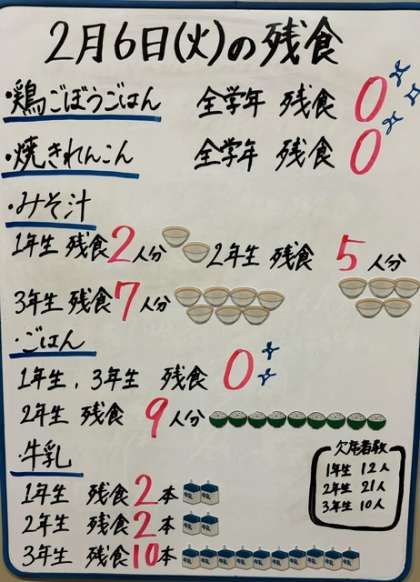 2月6日(火)の残食
・鶏ごぼうごはん 全学年 残食 0
・焼きれんこん 全学年 残食 0
・みそ汁
1年生 残食 2人分 2年生 残食 5人分
3年生 残食 7人分
・ごはん
1年生、3年生 残食 0
2年生 残食 9人分
・牛乳
1年生 残食 2本
2年生 残食 2本
3年生 残食 10本
欠席者数
1年生 12人
2年生 21人
3年生 10人